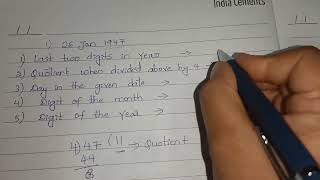 India Cements
11
11
1) 26 Jan 1947
1) Last two digits in year →
2) Quotient when divided above by 4 →
3) Day in the given date →
4) Digit of the month →
5) Digit of the year →
4) 47 ( 11 → Quotient
44
3